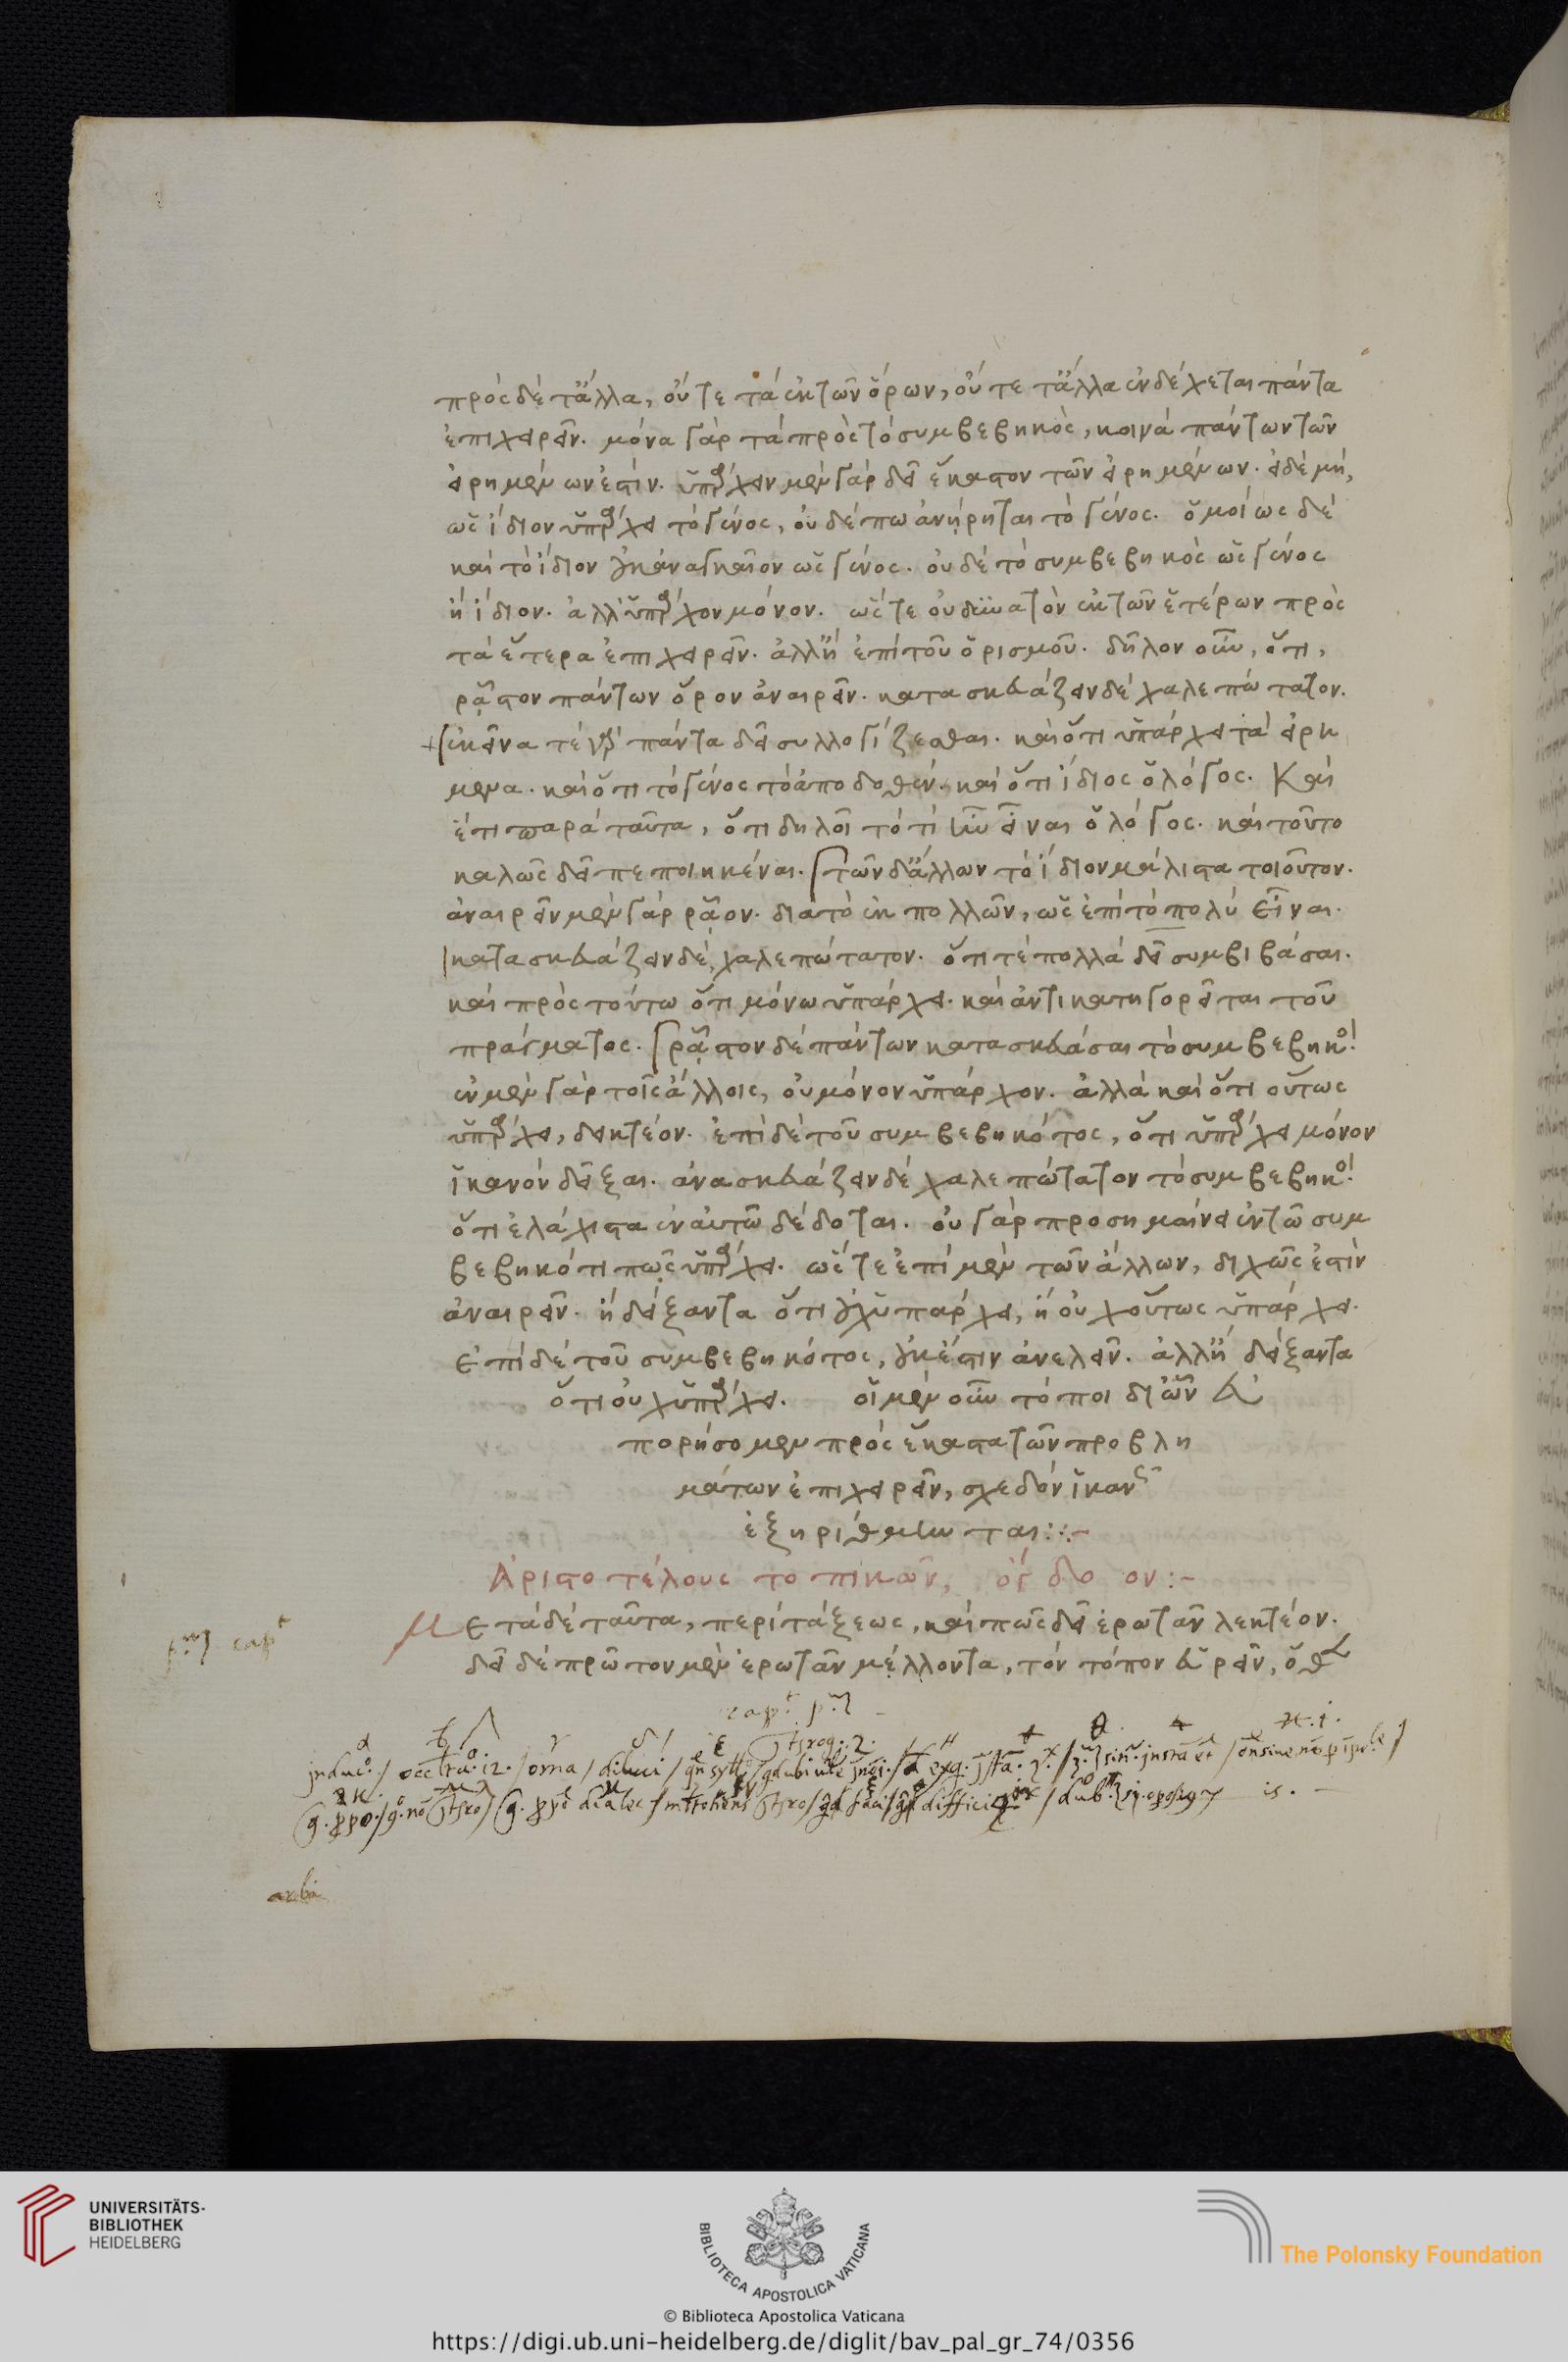 πρὸς δὲ τἄλλα, οὔτε τὰ ἐκ τῶν ὅρων, οὔτε τἄλλα ἐνδέχεται πάντα
ἐπιχειρεῖν. μόνα γὰρ τὰ πρὸς τὸ συμβεβηκὸς, κοινὰ πάντων τῶν
εἰρημένων ἐστίν. ὑπάρχειν μὲν γὰρ δεῖ ἕκαστον τῶν εἰρημένων. εἰ δὲ μὴ,
ὡς ἴδιον ὑπάρχει τὸ γένος, οὐδέπω ἀνῄρηται τὸ γένος. ὁμοίως δὲ
καὶ τὸ ἴδιον οὐκ ἀναγκαῖον ὡς γένος. οὐδὲ τὸ συμβεβηκὸς ὡς γένος
ἢ ἴδιον. ἀλλ' ὑπάρχον μόνον. ὥστε οὐ δυνατὸν ἐκ τῶν ἑτέρων πρὸς
τὰ ἕτερα ἐπιχειρεῖν. ἀλλ' ἢ ἐπὶ τοῦ ὁρισμοῦ. δῆλον οὖν, ὅτι,
ῥᾷστον πάντων ὅρον ἀναιρεῖν. κατασκευάζειν δὲ χαλεπώτατον.
ἐκεῖνα τε γὰρ πάντα δεῖ συλλογίζεσθαι. καὶ ὅτι ὑπάρχει τὰ εἰρη
μένα. καὶ ὅτι τὸ γένος τὸ ἀποδοθέν. καὶ ὅτι ἴδιος ὁ λόγος. Καὶ
ἔτι παρὰ ταῦτα, ὅτι δηλοῖ τὸ τί ἦν εἶναι ὁ λόγος. καὶ τοῦτο
καλῶς δεῖ πεποιηκέναι. τῶν δ' ἄλλων τὸ ἴδιον μάλιστα τοιοῦτον.
ἀναιρεῖν μὲν γὰρ ῥᾷον. διὰ τὸ ἐκ πολλῶν, ὡς ἐπὶ τὸ πολὺ εἶναι.
κατασκευάζειν δὲ, χαλεπώτατον. ὅτι τὲ πολλὰ δεῖ συμβιβάσαι.
καὶ πρὸς τούτω ὅτι μόνω ὑπάρχει. καὶ ἀντικατηγορεῖται τοῦ
πράγματος. ῥᾷστον δὲ πάντων κατασκευάσαι τὸ συμβεβηκός.
ἐν μὲν γὰρ τοῖς ἄλλοις, οὐ μόνον ὑπάρχον. ἀλλὰ καὶ ὅτι οὕτως
ὑπάρχει, δεικτέον. ἐπὶ δὲ τοῦ συμβεβηκότος, ὅτι ὑπάρχει μόνον
ἱκανὸν δεῖξαι. ἀνασκευάζειν δὲ χαλεπώτατον τὸ συμβεβηκός.
ὅτι ἐλάχιστα ἐν αὐτῶ δέδοται. οὐ γὰρ προσημαίνει ἐν τῶ συμ
βεβηκότι πῶς ὑπάρχει. ὥστε ἐπὶ μὲν τῶν ἄλλων, διχῶς ἐστὶν
ἀναιρεῖν. ἢ δείξαντα ὅτι οὐχ ὑπάρχει, ἢ οὐχ οὕτως ὑπάρχει.
ἐπὶ δὲ τοῦ συμβεβηκότος, οὐκ ἔστιν ἀνελεῖν. ἀλλ' ἢ δείξαντα
ὅτι οὐχ ὑπάρχει. οἱ μὲν οὖν τόποι δι' ὧν εὐ
πορήσομεν πρὸς ἕκαστα τῶν προβλη
μάτων ἐπιχειρεῖν, σχεδὸν ἱκανῶς
ἐξηρίθμηνται:·-
Ἀριστοτέλους τοπικῶν, ὄγδοον:-
pm cap
Μετὰ δὲ ταῦτα, περὶ τάξεως, καὶ πῶς δεῖ ἐρωτᾶν λεκτέον.
δεῖ δὲ πρῶτον μὲν ἐρωτᾶν μέλλοντα, τὸν τόπον εὑρεῖν, ὅθεν
UNIVERSITÄTS-
BIBLIOTHEK
HEIDELBERG
BIBLIOTECA APOSTOLICA VATICANA
The Polonsky Foundation
© Biblioteca Apostolica Vaticana
https://digi.ub.uni-heidelberg.de/diglit/bav_pal_gr_74/0356